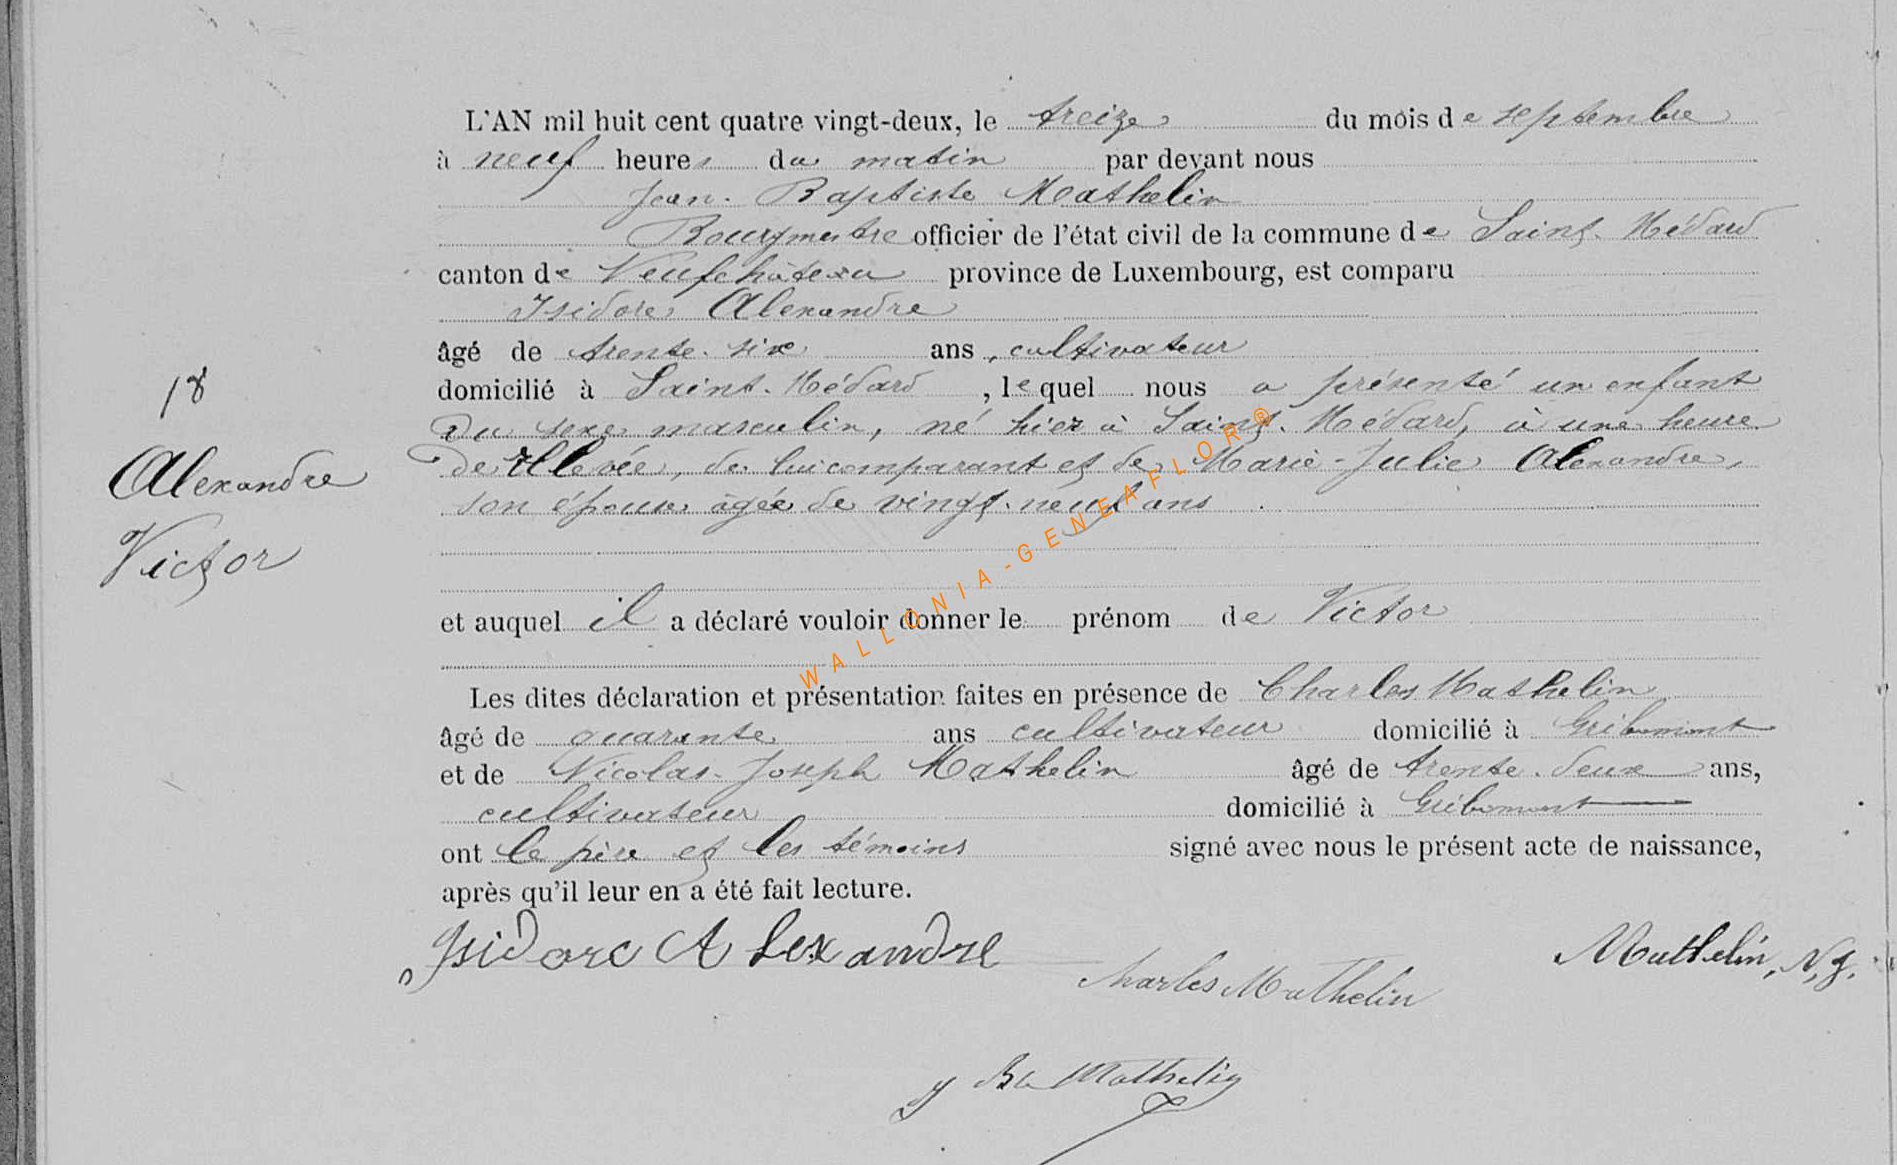 L'AN mil huit cent quatre vingt-deux, le treize du mois de septembre
à neuf heures du matin par devant nous
Jean-Baptiste Mathelin
Bourgmestre officier de l'état civil de la commune de Saint-Médard
canton de Neufchâteau province de Luxembourg, est comparu
Isidore Alexandre
âgé de trente-six ans, cultivateur
domicilié à Saint-Médard, lequel nous a présenté un enfant
du sexe masculin, né hier à Saint-Médard, à une heure
de rélevée, de lui comparant et de Marie-Julie Alexandre,
son épouse âgée de vingt-neuf ans
et auquel il a déclaré vouloir donner le prénom de Victor
Les dites déclaration et présentation faites en présence de Charles Mathelin
âgé de quarante ans cultivateur domicilié à Gribomont
et de Nicolas-Joseph Mathelin âgé de trente-deux ans,
cultivateur domicilié à Gribomont
ont le père et les témoins signé avec nous le présent acte de naissance,
après qu'il leur en a été fait lecture.
18
Alexandre
Victor
Isidore Alexandre
Charles Mathelin
Mathelin, N, J.
J Bte Mathelin
WALLONIA-GENEAFLOR®